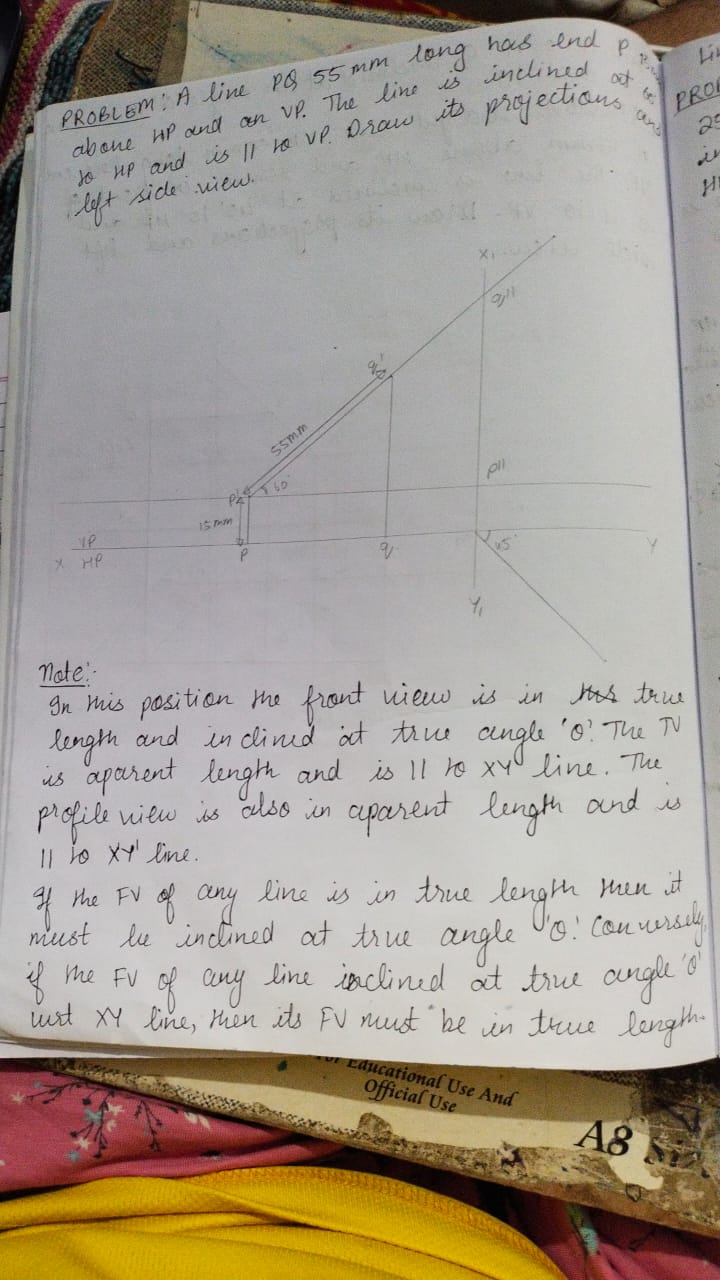 PROBLEM: A line PQ 55 mm long has end P
above HP and on VP. The line is inclined at
to HP and is || to VP. Draw its projections and
left side view.
X1
q"
q'
55mm
P"
P'
60
15 mm
VP
X HP
P
q
45
Y
Y1
Note:-
In this position the front view is in true
length and inclined at true angle 'O'. The TV
is aparent length and is || to XY line. The
profile view is also in aparent length and is
|| to XY' line.
If the FV of any line is in true length then it
must be inclined at true angle 'O'. Conversely,
if the FV of any line inclined at true angle 'O'
wrt XY line, then its FV must be in true length.
Lin
PROB
in
For Educational Use And
Official Use
A8